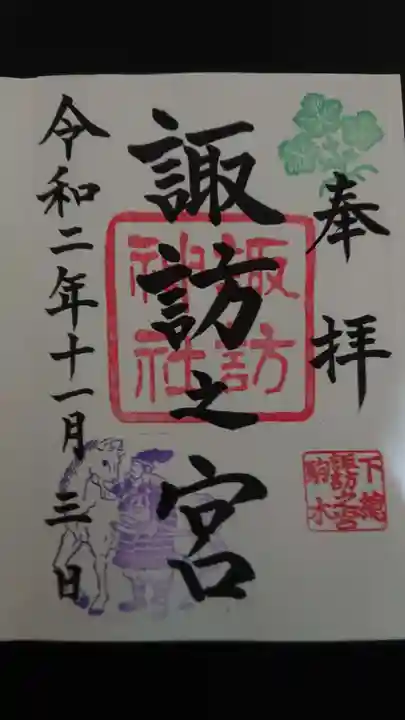 奉拝
諏訪之宮
諏訪
神社
下総
諏訪之宮
駒木
令和二年十一月三日